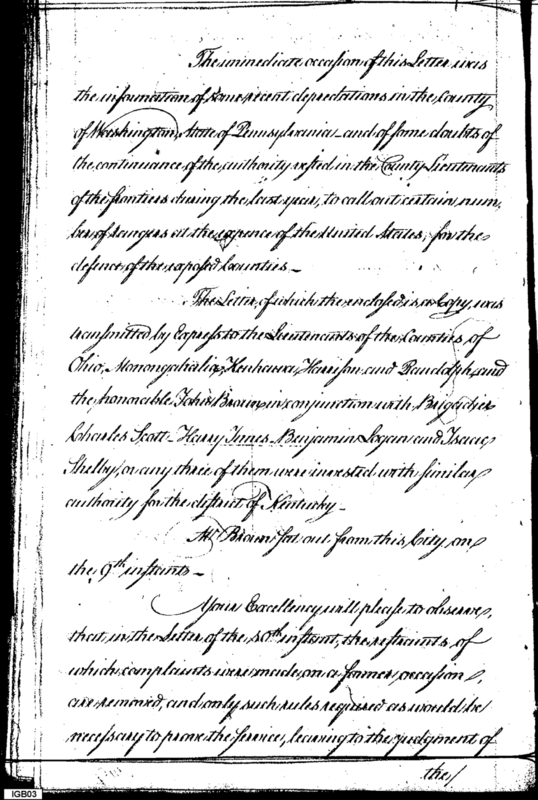 The immediate occasion of this Letter was
the information of some recent depredations in the County
of Washington, State of Pennsylvania and of some doubts of
the continuance of the authority vested in the County Lieutenants
of the frontiers during the last year, to call out certain num
bers of rangers at the expence of the United States, for the
defence of the exposed Counties—
The Letter, of which the enclosed is a Copy, was
transmitted by Express to the Lieutenants of the Counties of
Ohio, Monongahalia, Kenhawa, Harrison and Randolph, and
the honorable John Brown in conjunction with Brigadier
Charles Scott—Harry Innes Benjamin Logan and Isaac
Shelby, or any three of them were invested with similar
authority for the district of Kentucky—
Mr Brown set out from this City on
the 9th instant—
Your Excellency will please to observe,
that in the Letter of the 10th instant, the restraints of
which complaints were made, on a former occasion,
are removed, and only such rules required as would be
necessary to prove the service, leaving to the judgment of
the/
IGB03